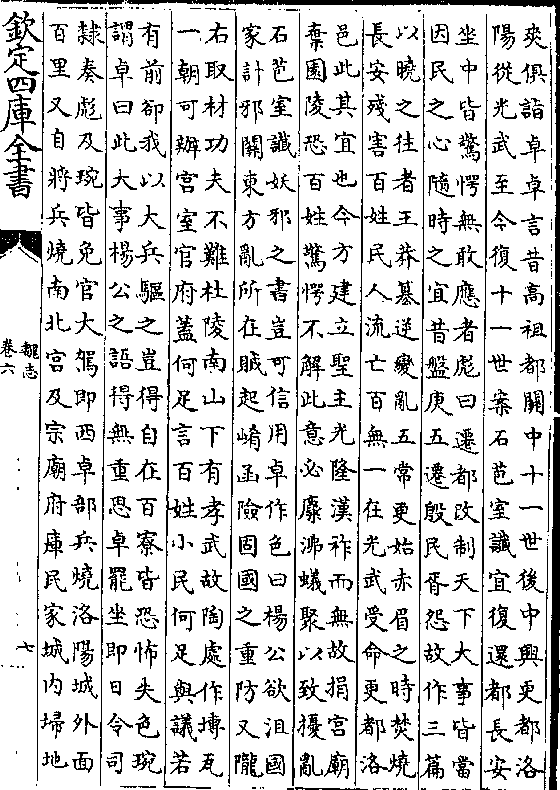 爽俱詣卓卓言昔高祖都關中十一世後中興更都洛
陽從光武至今復十一世案石苞室讖宜復還都長安
坐中皆驚愕無敢應者彪曰遷都改制天下大事皆當
因民之心隨時之宜昔盤庚五遷殷民胥怨故作三篇
以曉之往者王莽簒逆變亂五常更始赤眉之時焚燒
長安殘害百姓民人流亡百無一在光武受命更都洛
邑此其宜也今方建立聖主光隆漢祚而無故捐宮廟
棄園陵恐百姓驚愕不解此意必麋沸蟻聚以致擾亂
石苞室讖妖邪之書豈可信用卓作色曰楊公欲沮國
家計邪關東方亂所在賊起崤函險固國之重防又隴
右取材功夫不難杜陵南山下有孝武故陶處作塼瓦
一朝可辦宮室官府蓋何足言百姓小民何足與議若
有前卻我以大兵驅之豈得自在百寮皆恐怖失色琬
謂卓曰此大事楊公之語得無重思卓罷坐即日令司
隸奏彪及琬皆免官大駕即西卓部兵燒洛陽城外面
百里又自將兵燒南北宮及宗廟府庫民家城內埽地
欽定四庫全書
魏志
卷六
七